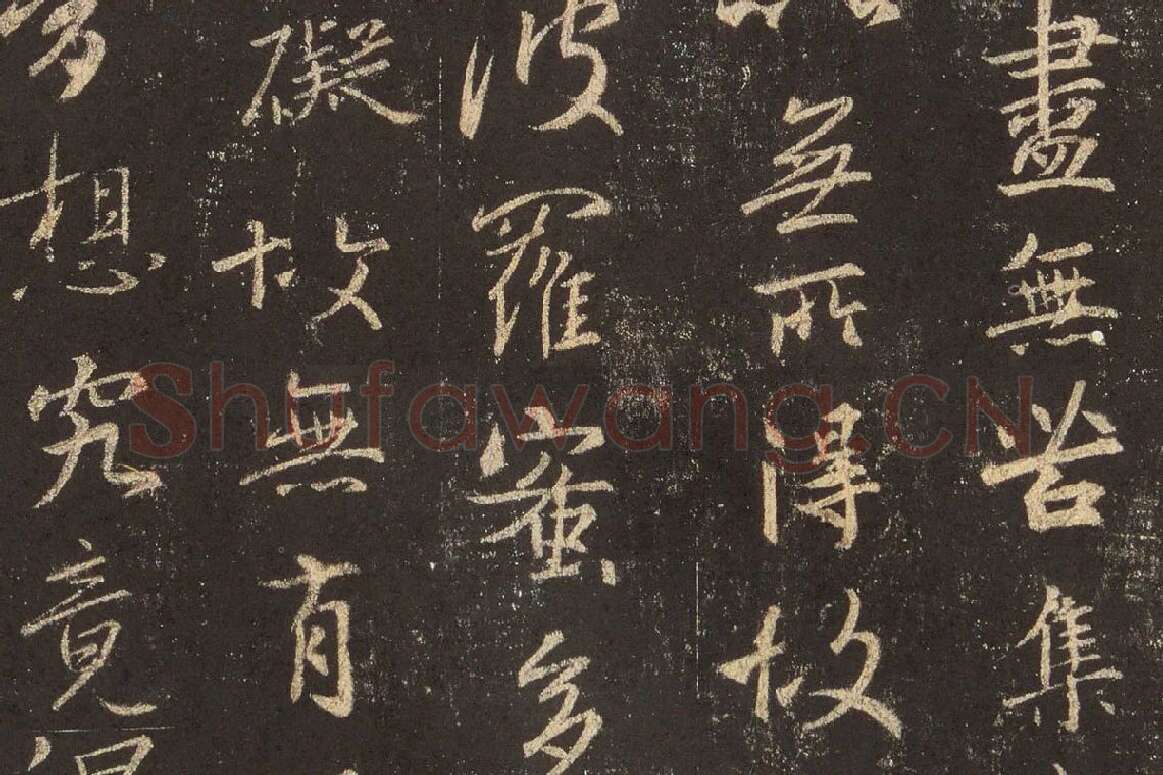 盡無苦集
無所得故
波羅蜜多
礙故無有
想究竟
Shufawang.CN